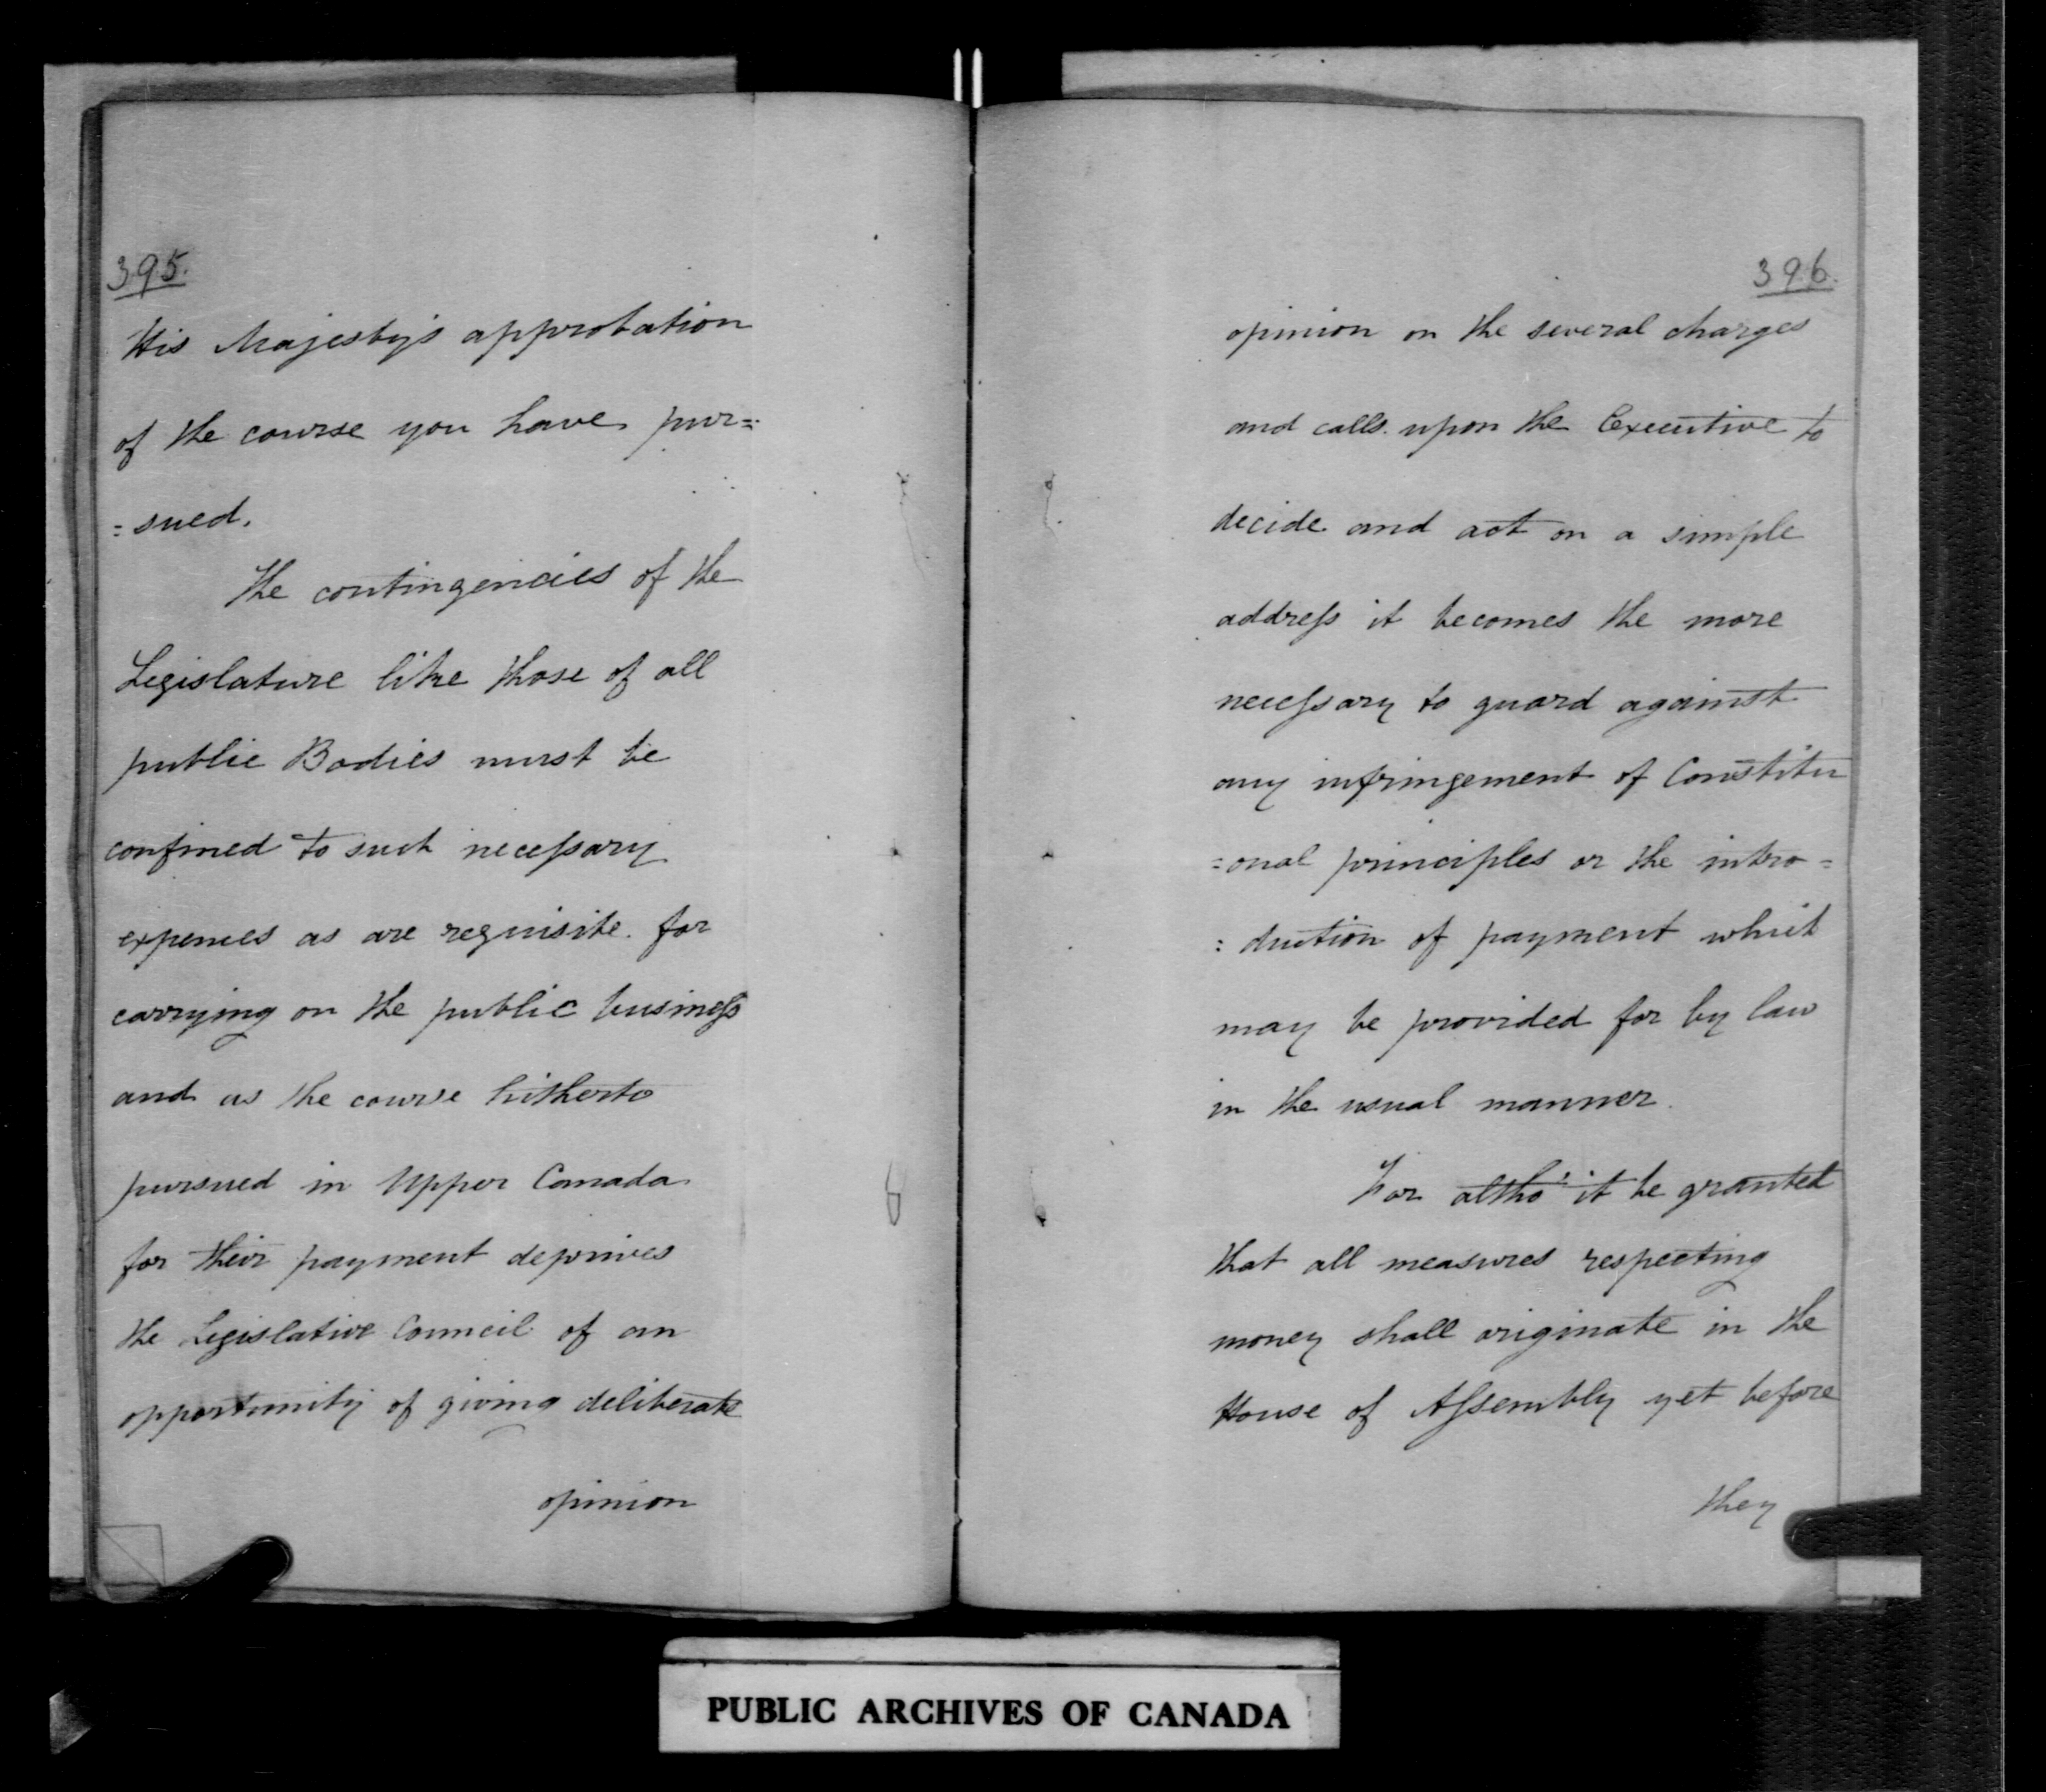 395.
His Majesty's approbation
of the course you have pur=
=sued.
The contingencies of the
Legislature like those of all
public Bodies must be
confined to such necessary
expences as are requisite for
carrying on the public business
and as the course hitherto
pursued in Upper Canada
for their payment deprives
the Legislative Council of an
opportunity of giving deliberate
opinion
396.
opinion on the several charges
and calls upon the Executive to
decide and act on a simple
address it becomes the more
necessary to guard against
any infringement of Constitu
=onal principles or the intro=
=duction of payment which
may be provided for by law
in the usual manner.
For altho' it be granted
that all measures respecting
money shall originate in the
House of Assembly yet before
they
PUBLIC ARCHIVES OF CANADA